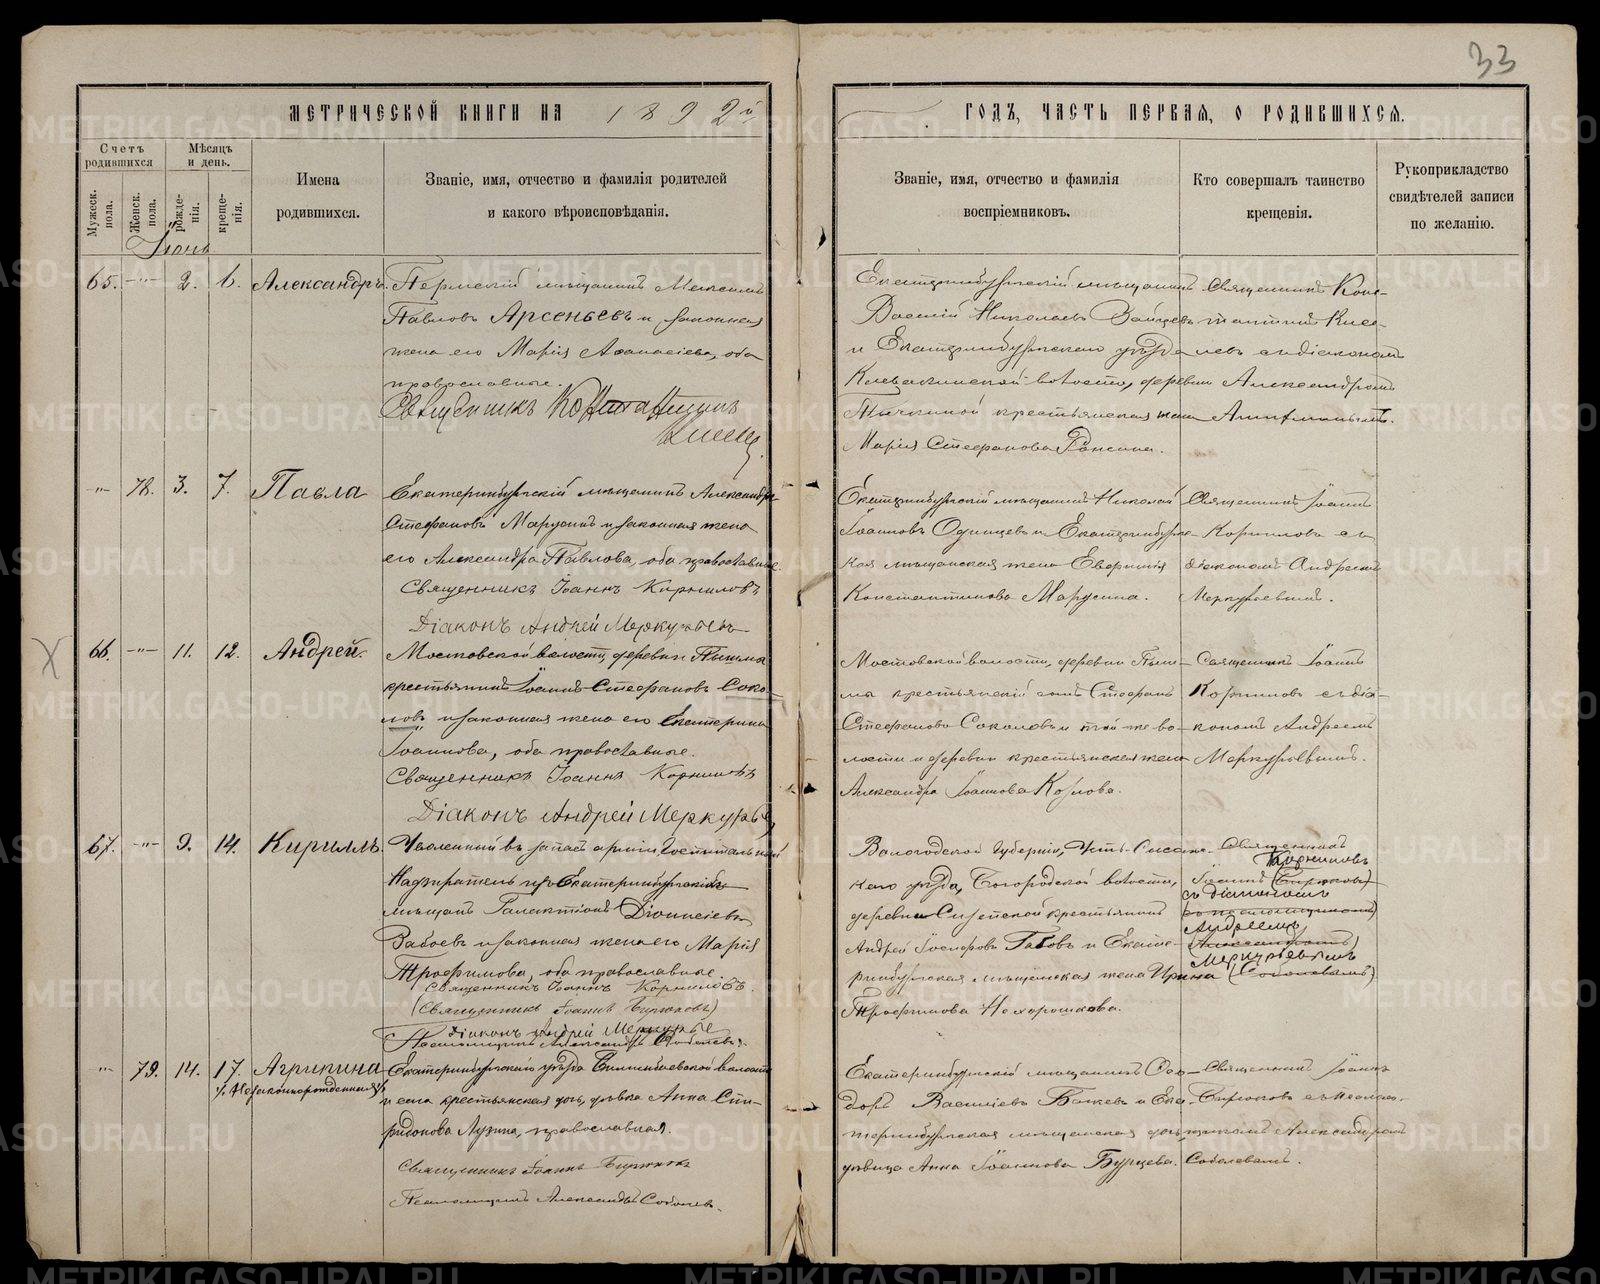 33
МЕТРИЧЕСКОЙ КНИГИ НА 1892й
ГОДЪ, ЧАСТЬ ПЕРВАЯ, О РОДИВШИХСЯ.
Счетъ родившихся
Мужеск. пола.
Женск. пола.
Мѣсяцъ и день.
рожденія.
крещенія.
Имена родившихся.
Званіе, имя, отчество и фамилія родителей
и какого вѣроисповѣданія.
Званіе, имя, отчество и фамилія
воспріемниковъ.
Кто совершалъ таинство
крещенія.
Рукоприкладство
свидѣтелей записи
по желанію.
Іюнь
65. -"- 2. 6. Александръ.
Пермскій мѣщанинъ Максимъ
Павловъ Арсеньевъ и законная
жена его Марія Аѳанасіева, оба
православные.
Священникъ Константинъ
Екатеринбургскій мѣщанинъ
Василій Николаевъ Зайцевъ
и Екатеринбургскаго уѣзда
Клевакинской волости, деревни
крестьянская жена
Марія Стефанова
Священникъ Конс-
тантинъ
съ діакономъ
Александромъ
-"- 78. 3. 7. Павла
Екатеринбургскій мѣщанинъ Александръ
Стефановъ Марусинъ и законная жена
его Александра Павлова, оба православные.
Священникъ Іоаннъ Корниловъ
Діаконъ Андрей Меркурьевъ
Екатеринбургскій мѣщанинъ Николай
Іоанновъ Одинцевъ и Екатеринбургс-
кая мѣщанская жена Евдокія
Константинова Марусина.
Священникъ Іоаннъ
Корниловъ съ
діакономъ Андреемъ
Меркурьевымъ.
66. -"- 11. 12. Андрей.
Мостовской волости, деревни Пышмы
крестьянинъ Іоаннъ Стефановъ Соко-
ловъ и законная жена его Екатерина
Іоаннова, оба православные.
Священникъ Іоаннъ Корниловъ
Діаконъ Андрей Меркурьевъ
Мостовской волости, деревни Пыш-
мы крестьянскій сынъ Стефанъ
Стефановъ Соколовъ и той же во-
лости и деревни крестьянская жена
Александра Іоаннова Козлова.
Священникъ Іоаннъ
Корниловъ съ діа-
кономъ Андреемъ
Меркурьевымъ.
67. -"- 9. 14. Кириллъ.
Уволенный въ запасъ арміи Госпитальный
Надзиратель изъ Екатеринбургскихъ
мѣщанъ Галактіонъ Діонисіевъ
Забоевъ и законная жена его Марія
Трофимова, оба православные.
Священникъ Іоаннъ Корниловъ.
(Священникъ Іоаннъ Бирюковъ)
Діаконъ Андрей Меркурье
Псаломщикъ Александръ Соболевъ.
Вологодской Губерніи, Усть-Сысольс-
каго уѣзда, Богородской волости,
деревни крестьянинъ
Андрей Іосифовъ Габовъ и Екате-
ринбургская мѣщанская жена Ирина
Трофимова Нехорошкова.
Священникъ
Корниловъ
Іоаннъ (Бирюковъ)
съ діакономъ
(съ псаломщикомъ)
Андреемъ
(Александромъ)
Меркурьевымъ
(Соболевымъ)
-"- 79. 14. 17. Агрипина
Незаконнорожденная
Екатеринбургскаго уѣзда Билимбаевской волости
и села крестьянская дочь, дѣвка Анна Спи-
ридонова Лузина, православная.
Священникъ Іоаннъ Бирюковъ
Псаломщикъ Александръ Соболевъ.
Екатеринбургскій мѣщанинъ Ѳео-
доръ Василіевъ Бажевъ и Ека-
теринбургская мѣщанская дочь,
дѣвица Анна Іоаннова Бурцева.
Священникъ Іоаннъ
Бирюковъ съ псалом-
щикомъ Александромъ
Соболевымъ.
METRIKI.GASO-URAL.RU